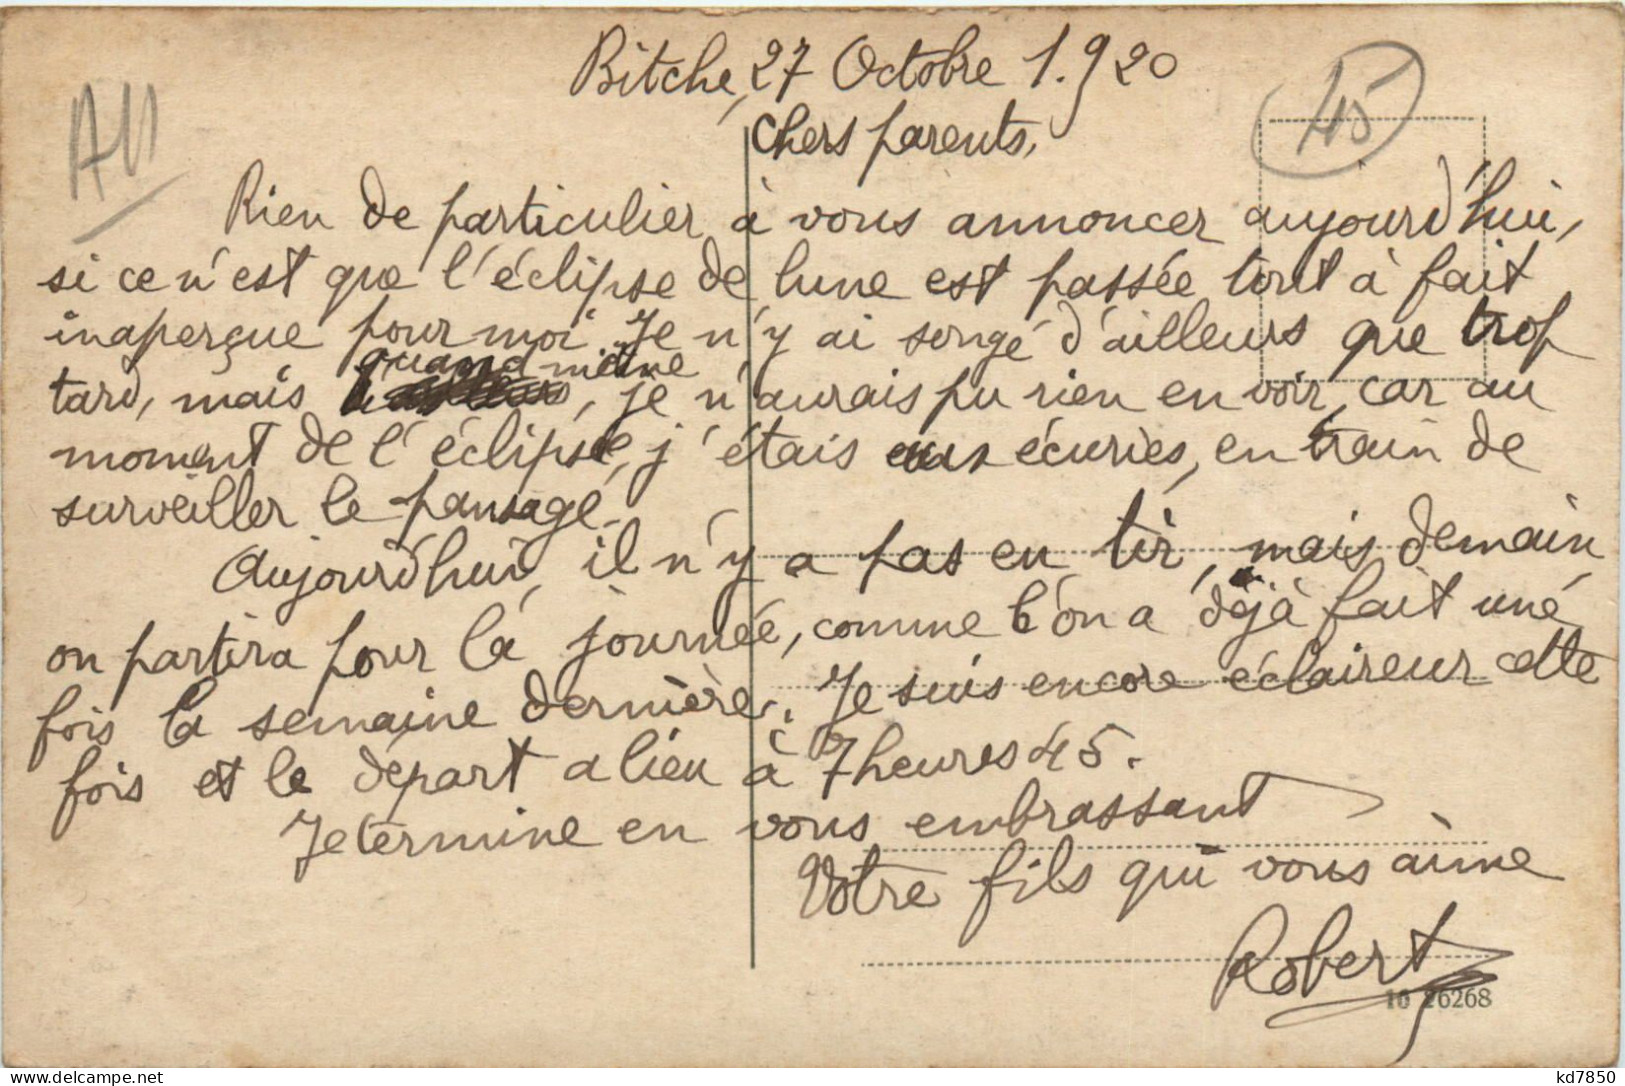 Bitche, 27 Octobre 1.920
AU
45
Chers parents,
Rien de particulier à vous annoncer aujourd'hui,
si ce n'est que l'éclipse de lune est passée tout à fait
inaperçue pour moi. Je n'y ai songé d'ailleurs que trop
quand même
tard, mais, je n'aurais pu rien en voir, car au
moment de l'éclipse, j'étais aux écuries, en train de
surveiller le pansage.
Aujourd'hui, il n'y a pas eu tir, mais demain
on partira pour la journée, comme l'on a déjà fait une
fois la semaine dernière. Je suis encore éclaireur cette
fois et le départ a lieu à 7 heures 45.
Je termine en vous embrassant
Votre fils qui vous aime
Robert
16 26268
kd7850